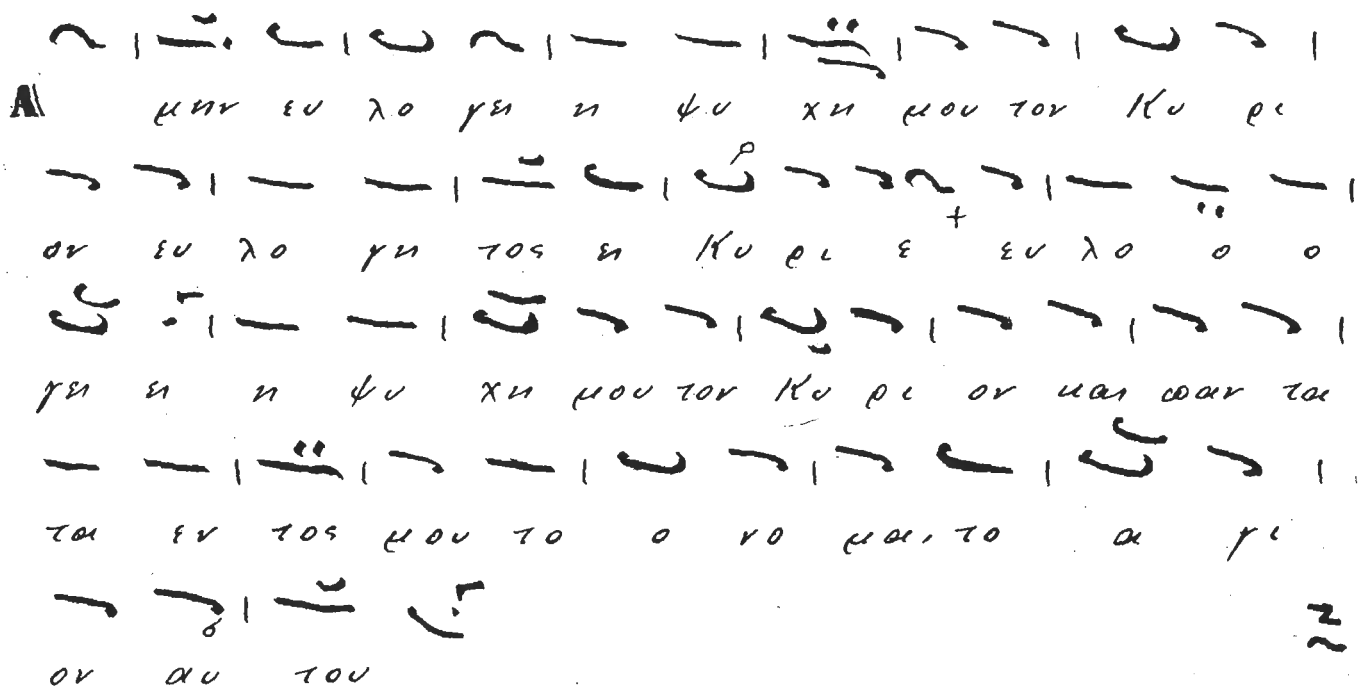 Α μην ευ λο γει η ψυ χη μου τον Κυ ρι
ον ευ λο γη τος ει Κυ ρι ε ευ λο ο ο
γει ει η ψυ χη μου τον Κυ ρι ον και παν τα
τα εν τος μου το ο νο μα, το α γι
ον αυ του